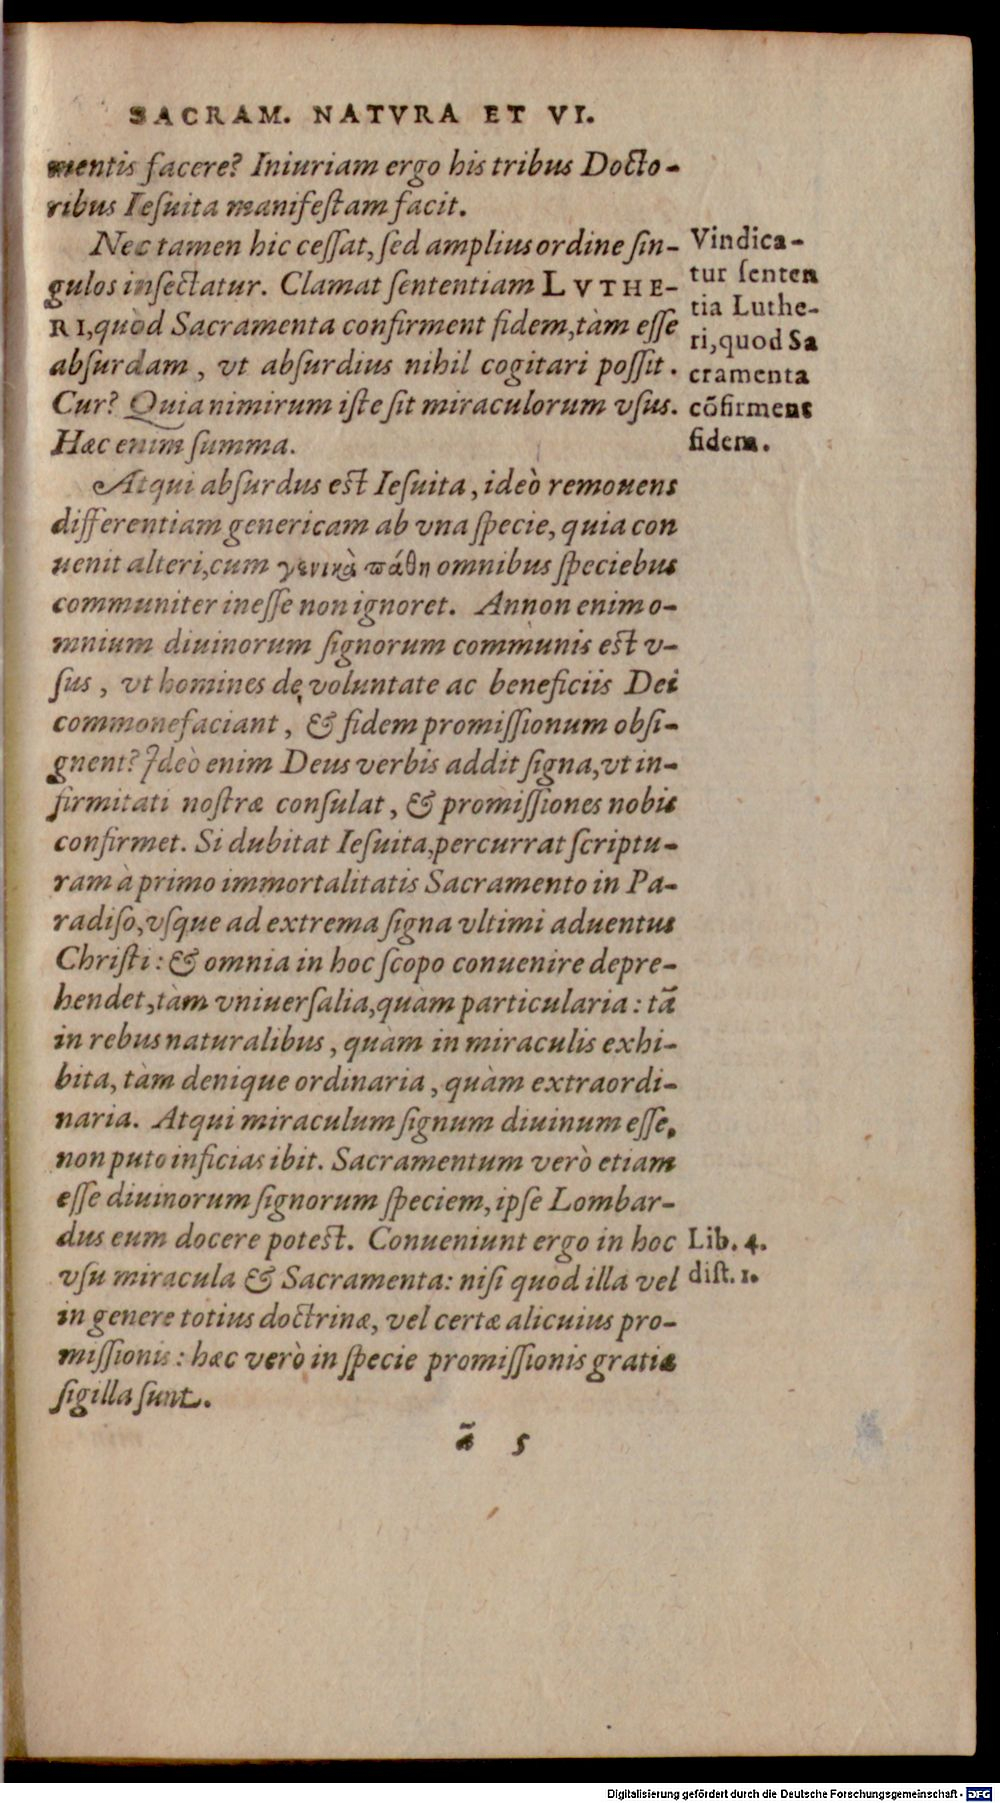 SACRAM. NATVRA ET VI.
mentis facere? Iniuriam ergo his tribus Docto-
ribus Iesuita manifestam facit.
Nec tamen hic cessat, sed amplius ordine sin-
gulos insectatur. Clamat sententiam LVTHE-
RI, quòd Sacramenta confirment fidem, tàm esse
absurdam, vt absurdius nihil cogitari possit.
Cur? Quia nimirum iste sit miraculorum vsus.
Hæc enim summa.
Vindica-
tur senten
tia Luthe-
ri, quod Sa
cramenta
cõfirment
fidem.
Atqui absurdus est Iesuita, ideò remouens
differentiam genericam ab vna specie, quia con
uenit alteri, cum γενικὰ πάθη omnibus speciebus
communiter inesse non ignoret. Annon enim o-
mnium diuinorum signorum communis est v-
sus, vt homines de voluntate ac beneficiis Dei
commonefaciant, & fidem promissionum obsi-
gnent? Ideò enim Deus verbis addit signa, vt in-
firmitati nostræ consulat, & promissiones nobis
confirmet. Si dubitat Iesuita, percurrat scriptu-
ram à primo immortalitatis Sacramento in Pa-
radiso, vsque ad extrema signa vltimi aduentus
Christi: & omnia in hoc scopo conuenire depre-
hendet, tàm vniuersalia, quàm particularia: tã
in rebus naturalibus, quàm in miraculis exhi-
bita, tàm denique ordinaria, quàm extraordi-
naria. Atqui miraculum signum diuinum esse,
non puto inficias ibit. Sacramentum verò etiam
esse diuinorum signorum speciem, ipse Lombar-
dus eum docere potest. Conueniunt ergo in hoc
vsu miracula & Sacramenta: nisi quod illa vel
in genere totius doctrinæ, vel certæ alicuius pro-
missionis: hæc verò in specie promissionis gratiæ
sigilla sunt.
Lib. 4.
dist. 1.
ã 5
Digitalisierung gefördert durch die Deutsche Forschungsgemeinschaft - DFG